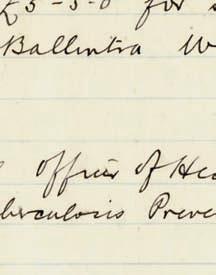 £5-5-0 for
Ballintra W
officer of Hea
uberculosis Preve